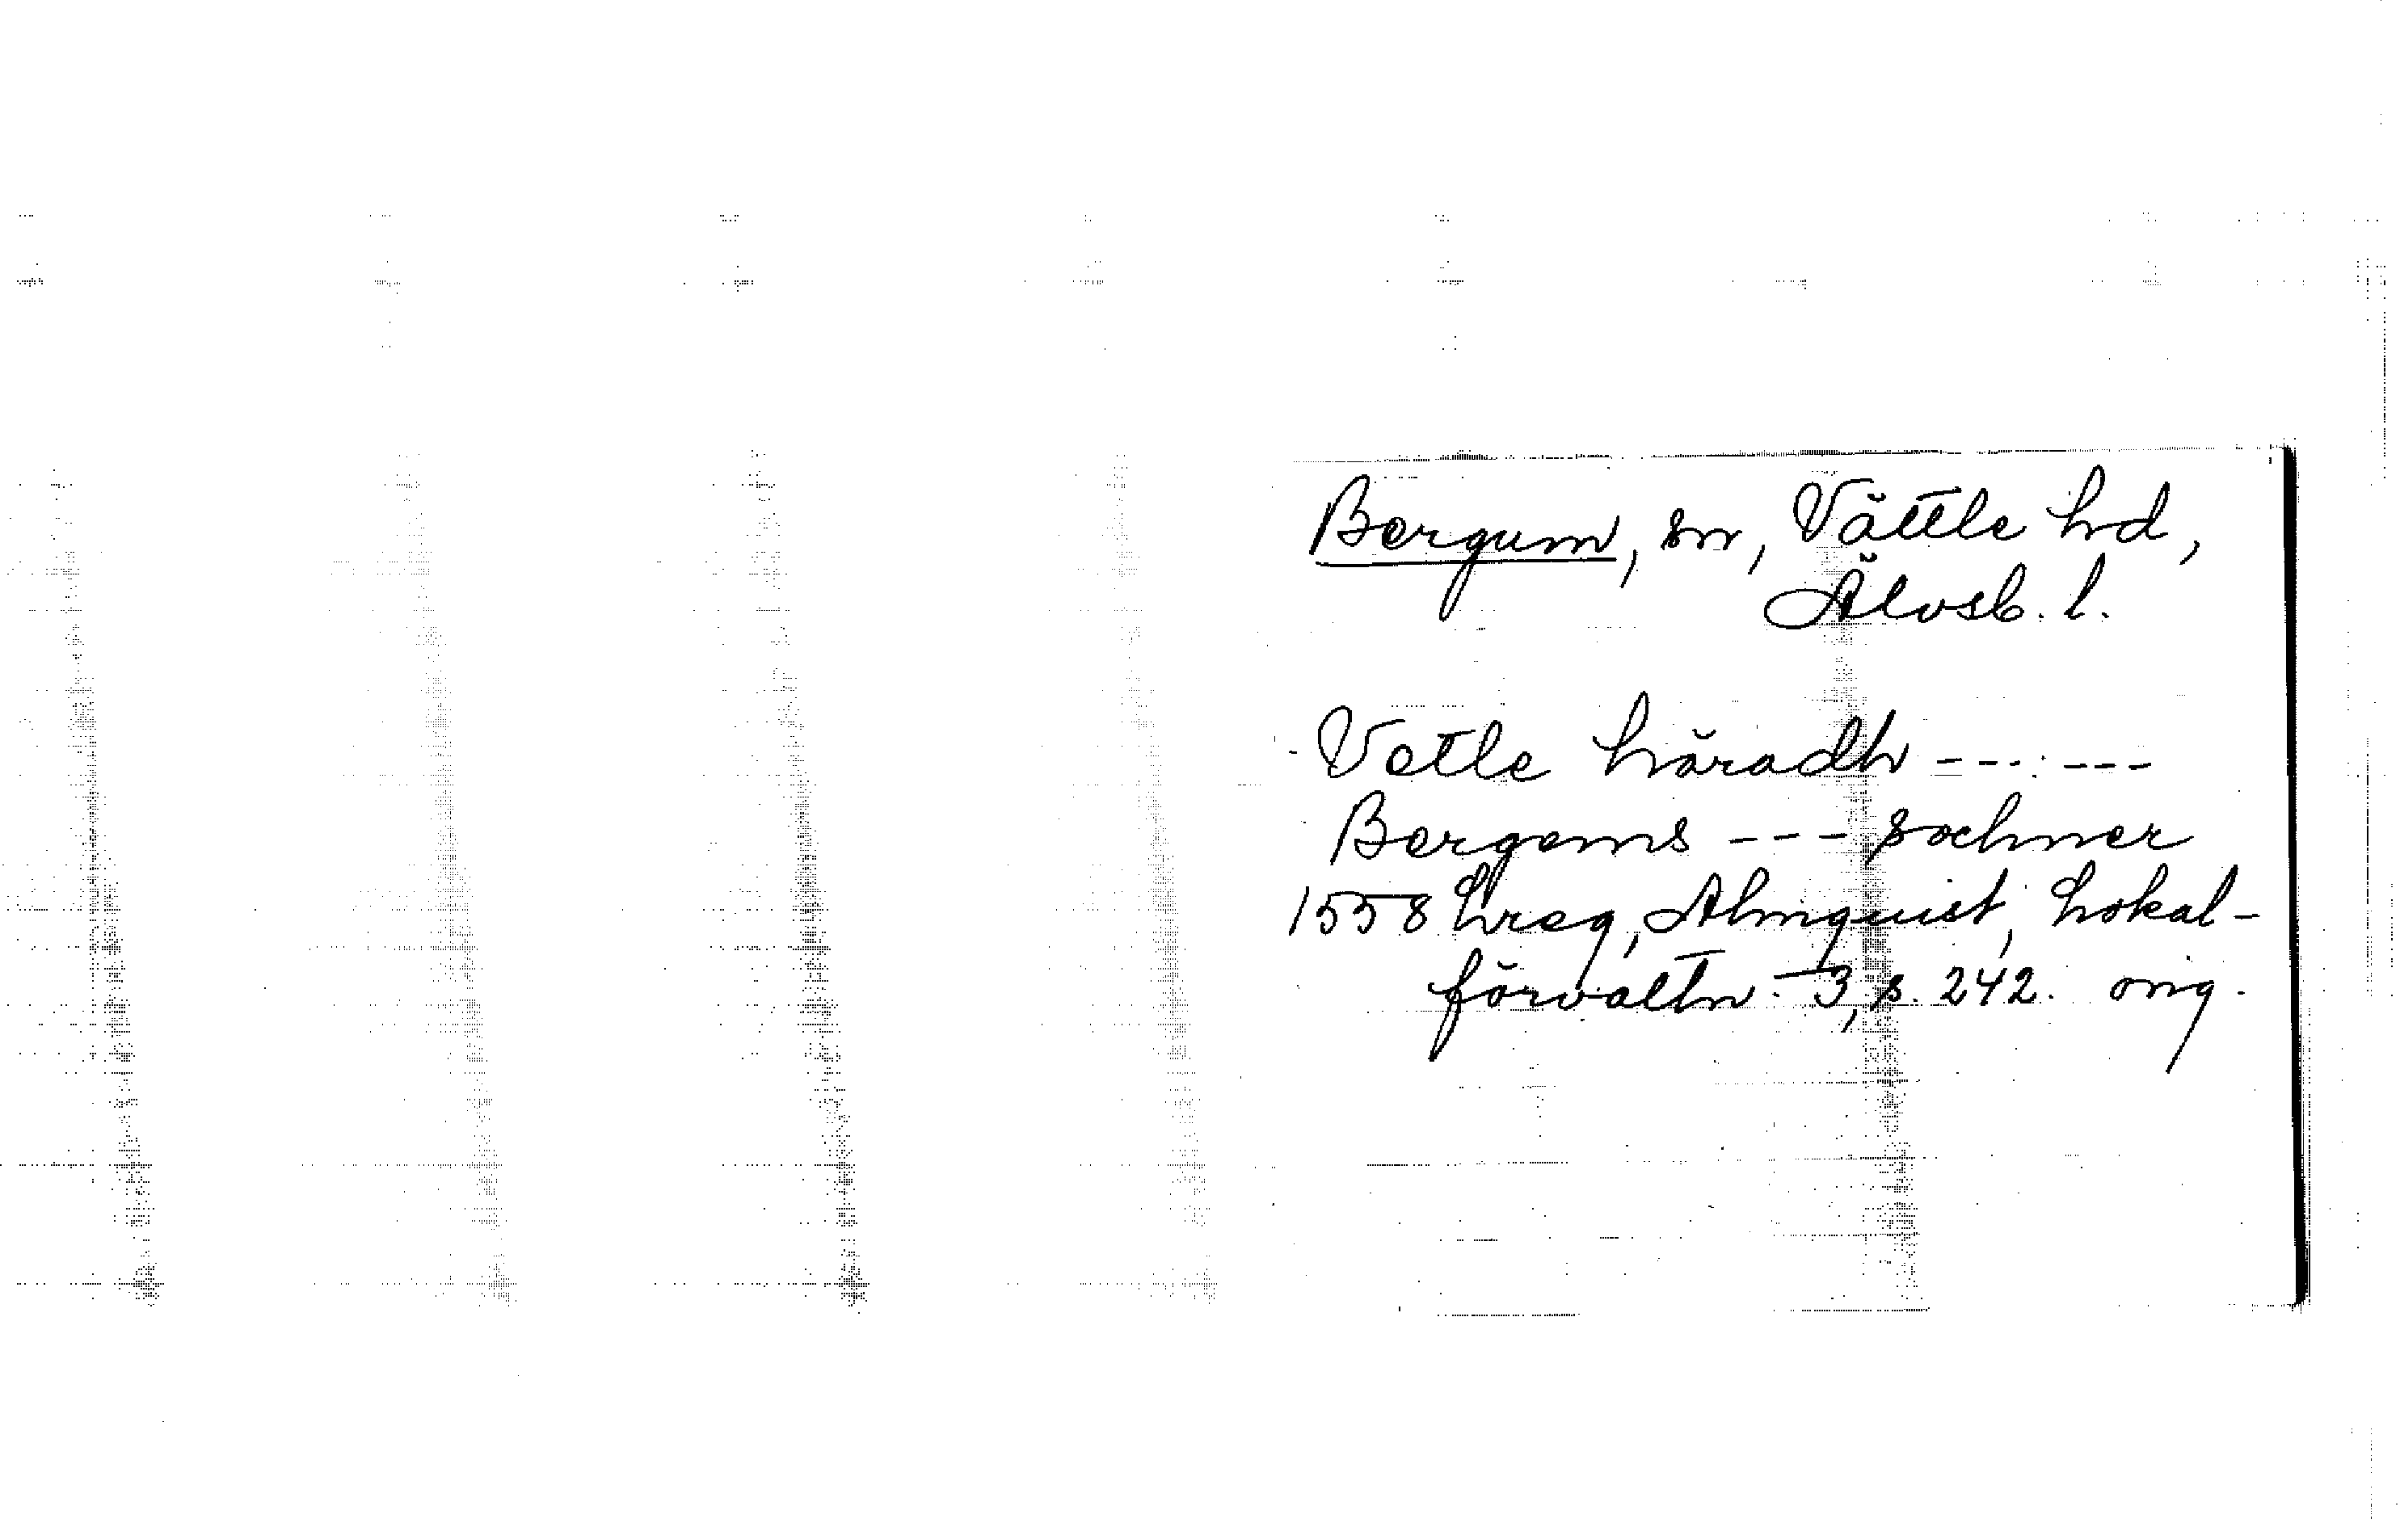 Bergum, sn, Vättle hd,
Älvsb. l.
Vetle häradh --- ---
Bergems --- sochner
1558 hreg, Almquist, Lokal-
förvaltn. 3, s. 242. orig.